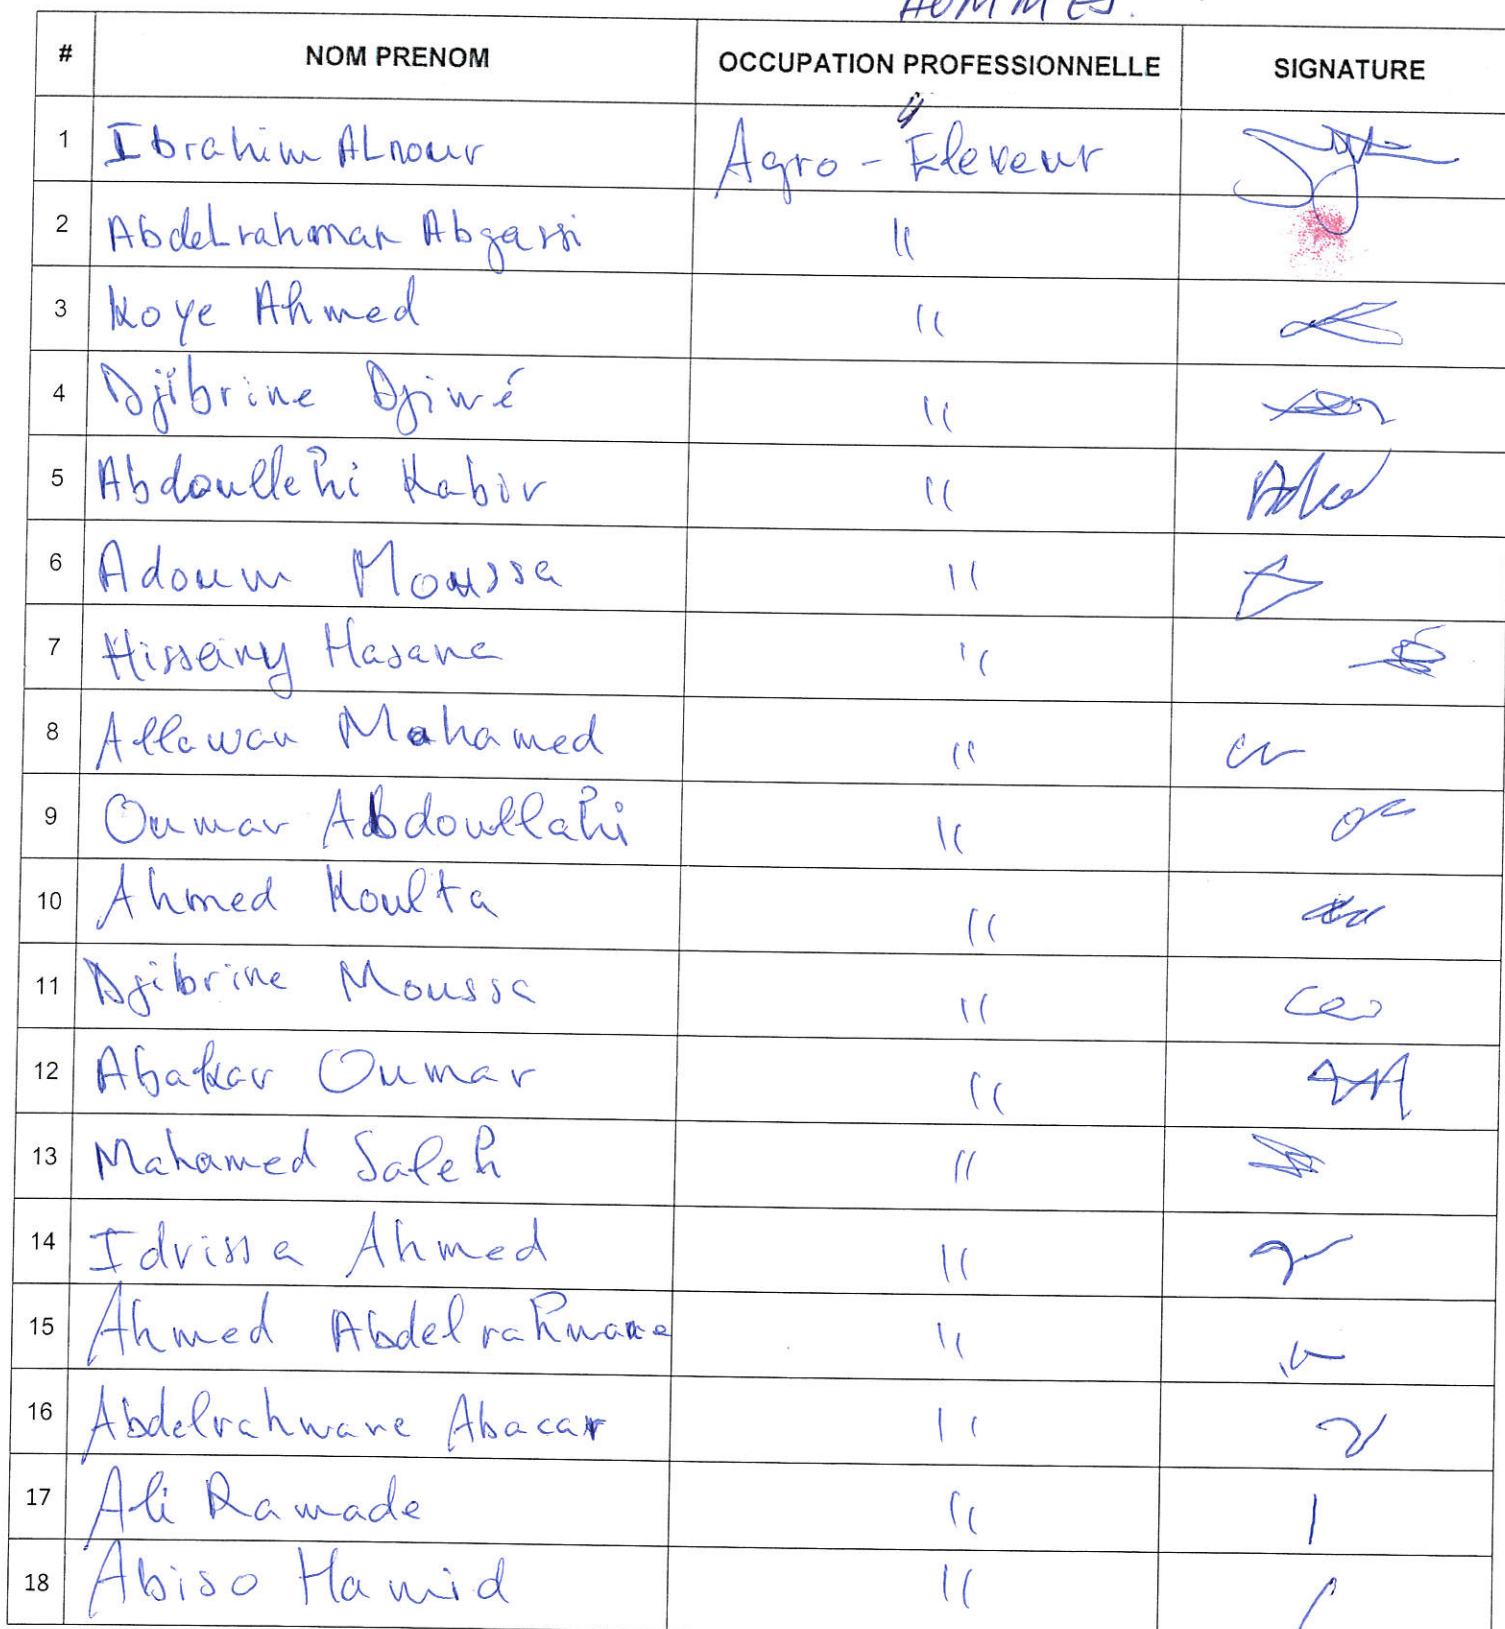 HOMMES.
# NOM PRENOM OCCUPATION PROFESSIONNELLE SIGNATURE
1 Ibrahim ALnour Agro - Eleveur
2 AbdeLrahman Abgassi "
3 Koye Ahmed "
4 Djibrine Djiwé "
5 Abdoullehi Kabir "
6 Adoum Moussa "
7 Hisseiny Hasana "
8 Allawan Mahamed "
9 Oumar Abdoullahi "
10 Ahmed Koulta "
11 Djibrine Moussa "
12 Abakar Oumar "
13 Mahamed Saleh "
14 Idrissa Ahmed "
15 Ahmed Abdelrahmane "
16 Abdelrahmane Abacar "
17 Ali Ramade "
18 Abiso Hamid "